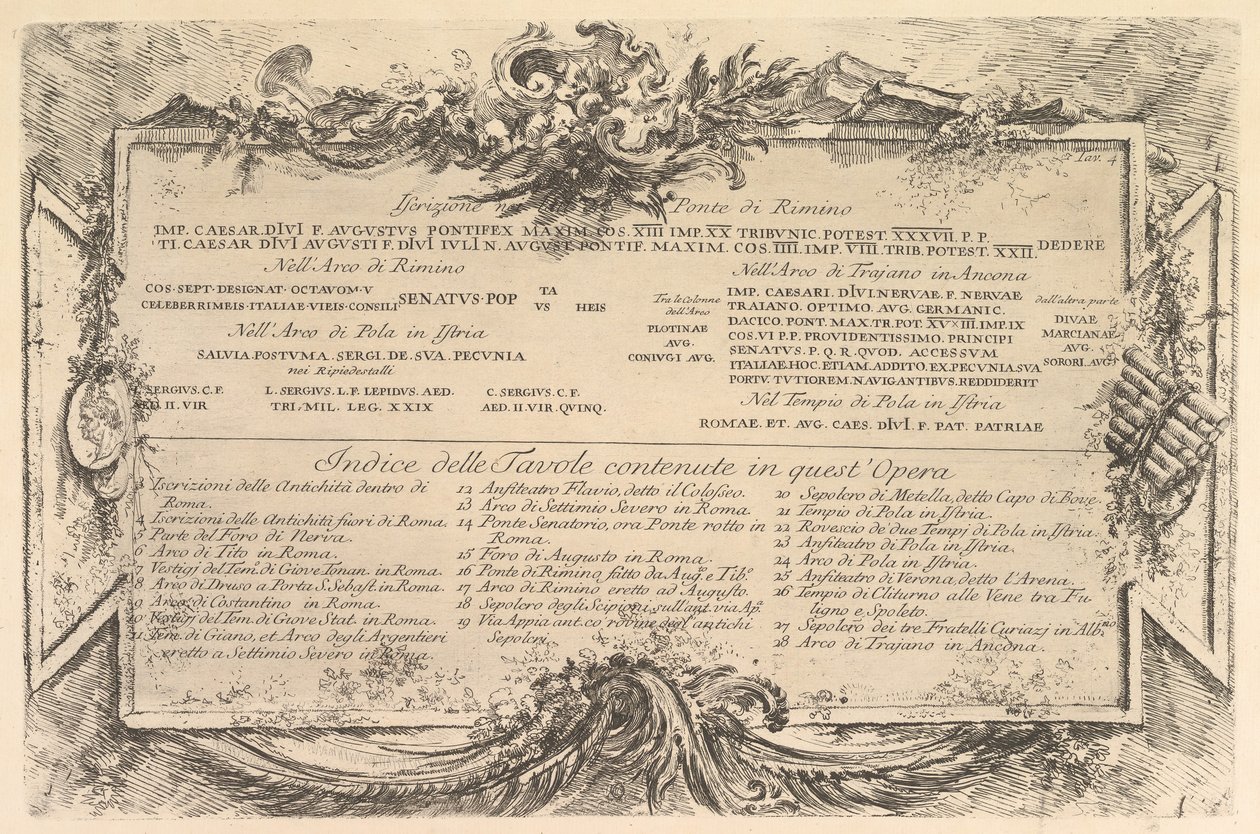 Tav. 4
Iscrizione n Ponte di Rimino
IMP. CAESAR. DIVI F. AVGVSTVS PONTIFEX MAXIM. COS. XIII IMP. XX TRIBVNIC. POTEST. XXXVII. P. P.
TI. CAESAR DIVI AVGVSTI F. DIVI IVLI N. AVGVST. PONTIF. MAXIM. COS. IIII. IMP. VIII. TRIB. POTEST. XXII. DEDERE
Nell'Arco di Rimino
COS · SEPT · DESIGNAT · OCTAVOM · V
CELEBERRIMEIS · ITALIAE · VIEIS · CONSILI SENATVS · POP
TA
VS HEIS
Nell'Arco di Pola in Istria
SALVIA. POSTVMA. SERGI. DE. SVA. PECVNIA
nei Ripiedestalli
L. SERGIVS. C. F.
AED. II. VIR
L. SERGIVS. L. F. LEPIDVS. AED.
TRI. MIL. LEG. XXIX
C. SERGIVS. C. F.
AED. II. VIR. QVINQ.
Nell'Arco di Trajano in Ancona
Tra le Colonne
dell'Arco
PLOTINAE
AVG.
CONIVGI AVG.
IMP. CAESARI. DIVI. NERVAE. F. NERVAE
TRAIANO. OPTIMO. AVG. GERMANIC.
DACICO. PONT. MAX. TR. POT. XV×III. IMP. IX
COS. VI P. P. PROVIDENTISSIMO. PRINCIPI
SENATVS. P. Q. R. QVOD. ACCESSVM
ITALIAE. HOC. ETIAM. ADDITO. EX. PECVNIA. SVA
PORTV. TVTIOREM. NAVIGANTIBVS. REDDIDERIT
dall'altra parte
DIVAE
MARCIANAE
AVG.
SORORI. AVG.
Nel Tempio di Pola in Istria
ROMAE. ET. AVG. CAES. DIVI. F. PAT. PATRIAE
Indice delle Tavole contenute in quest'Opera
3 Iscrizioni delle Antichità dentro di
Roma.
4 Iscrizioni delle Antichità fuori di Roma.
5 Parte del Foro di Nerva.
6 Arco di Tito in Roma.
7 Vestigj del Tem.º di Giove Tonan. in Roma.
8 Arco di Druso a Porta S. Sebast. in Roma.
9 Arco di Costantino in Roma.
10 Vestigj del Tem. di Giove Stat. in Roma.
11 Tem. di Giano, et Arco degli Argentieri
eretto a Settimio Severo in Roma.
12 Anfiteatro Flavio, detto il Colosseo.
13 Arco di Settimio Severo in Roma.
14 Ponte Senatorio, ora Ponte rotto in
Roma.
15 Foro di Augusto in Roma.
16 Ponte di Rimino fatto da Aug.º e Tib.º
17 Arco di Rimino eretto ad Augusto.
18 Sepolcro degli Scipioni sull'ant. via Ap.ª
19 Via Appia ant. co' rovine degl'antichi
Sepolcri.
20 Sepolcro di Metella, detto Capo di Bove.
21 Tempio di Pola in Istria.
22 Rovescio de' due Tempj di Pola in Istria.
23 Anfiteatro di Pola in Istria.
24 Arco di Pola in Istria.
25 Anfiteatro di Verona, detto l'Arena.
26 Tempio di Cliturno alle Vene tra Fu-
ligno e Spoleto.
27 Sepolcro dei tre Fratelli Curiazj in Alb.no
28 Arco di Trajano in Ancona.